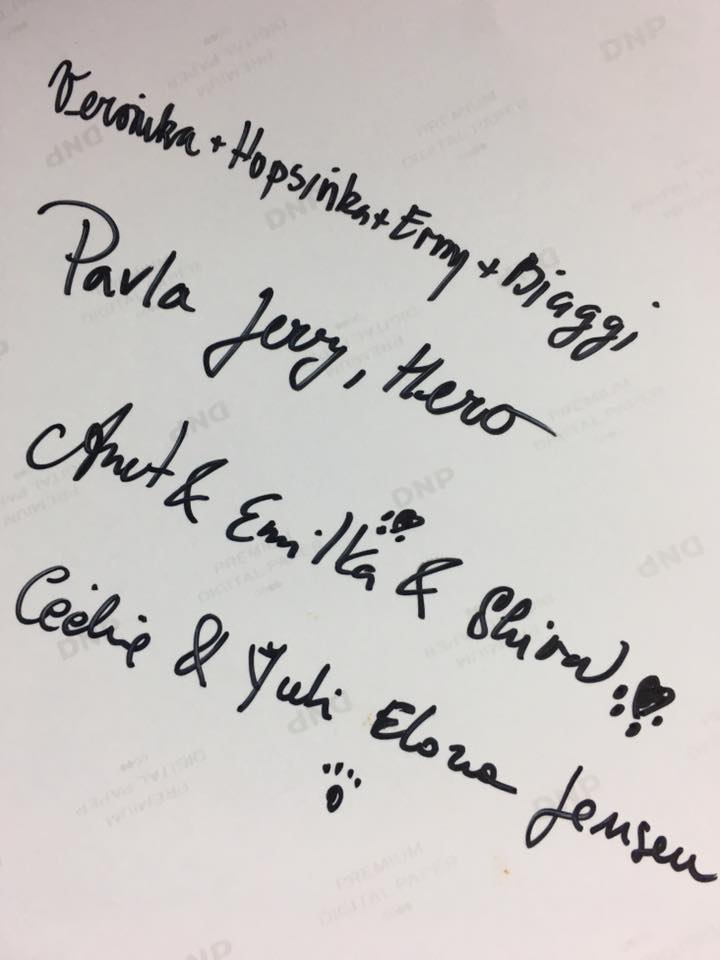 Veronika + Hopsinka + Erny + Biaggi
Pavla Jerry, Hero
Anet & Emilka & Shira
Cécilie & Yuli Elona Jensen
DNP
PREMIUM
DIGITAL PAPER